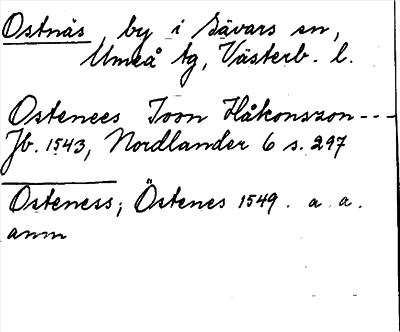 Ostnäs, by i Sävars sn,
Umeå tg, Västerb. l.
Ostenees Joon Håkonszon---
Jb. 1543, Nordlander 6 s. 297
Osteness, Östenes 1549. a. a.
anm